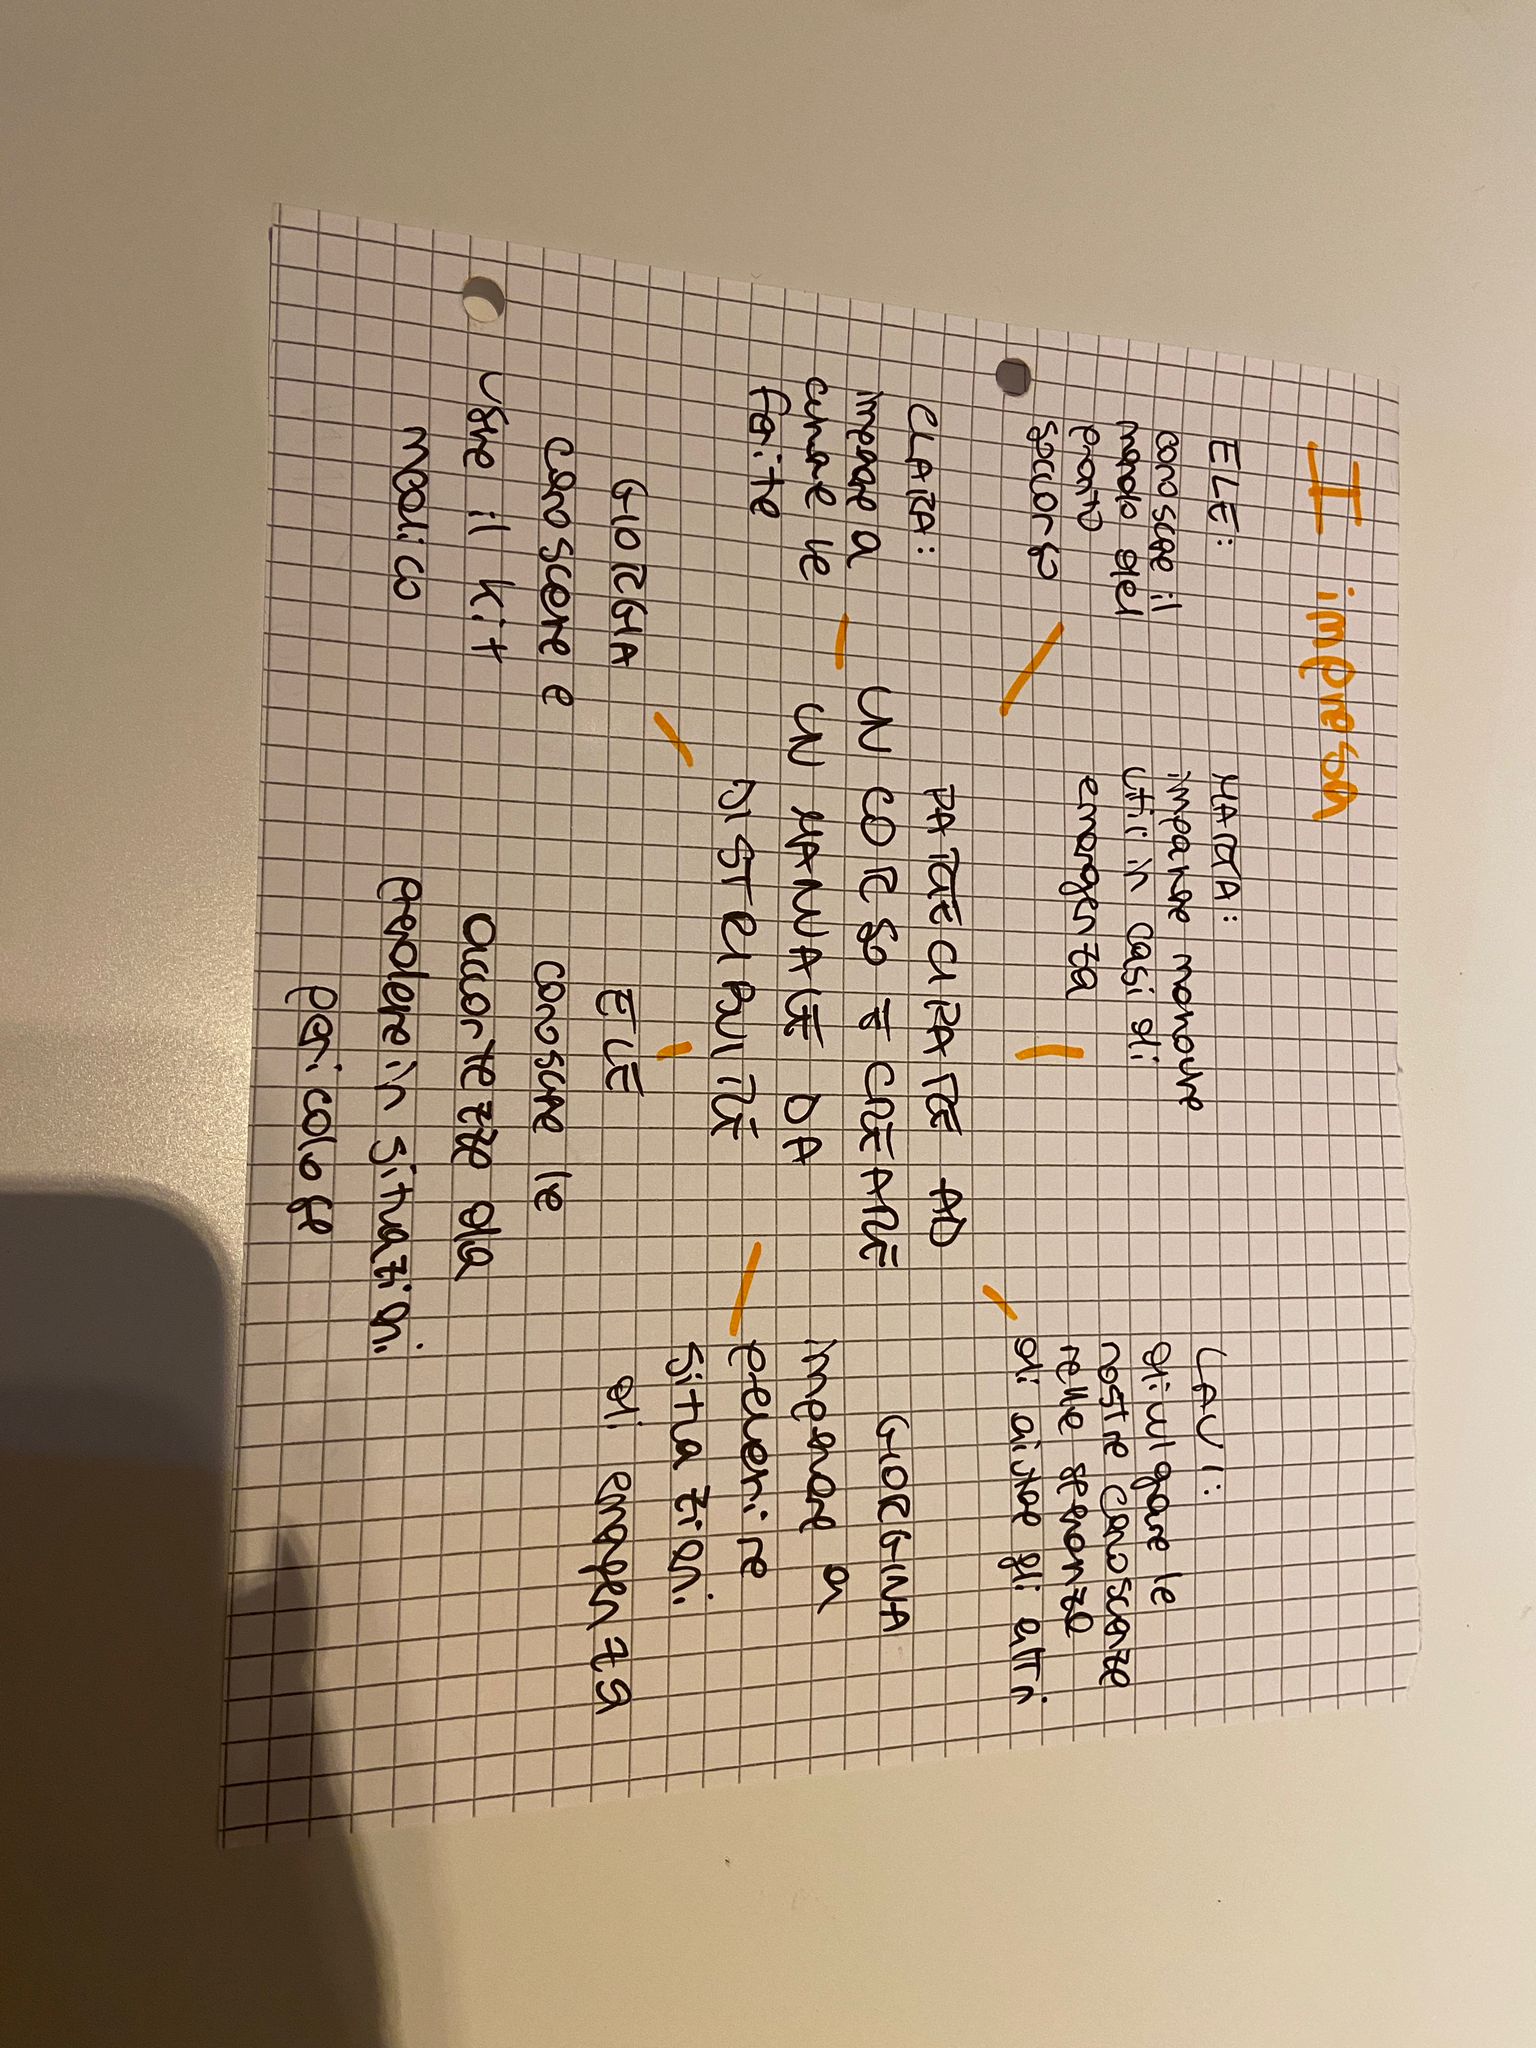 I impresa
ELE:
conoscere il
mondo del
pronto
soccorso
MARTA:
imparare manovre
utili in casi di
emergenza
LAVI:
divulgare le
nostre conoscenze
nelle speranze
di aiutare gli altri
CLARA:
imparare a
curare le
ferite
PARTECIPARE AD
UN CORSO E CREARE
UN MANUALE DA
DISTRIBUIRE
GIORGINA
imparare a
prevenire
situazioni
di emergenza
GIORGIA
conoscere e
usare il kit
medico
ELE
conoscere le
accortezze da
prendere in situazioni
pericolose